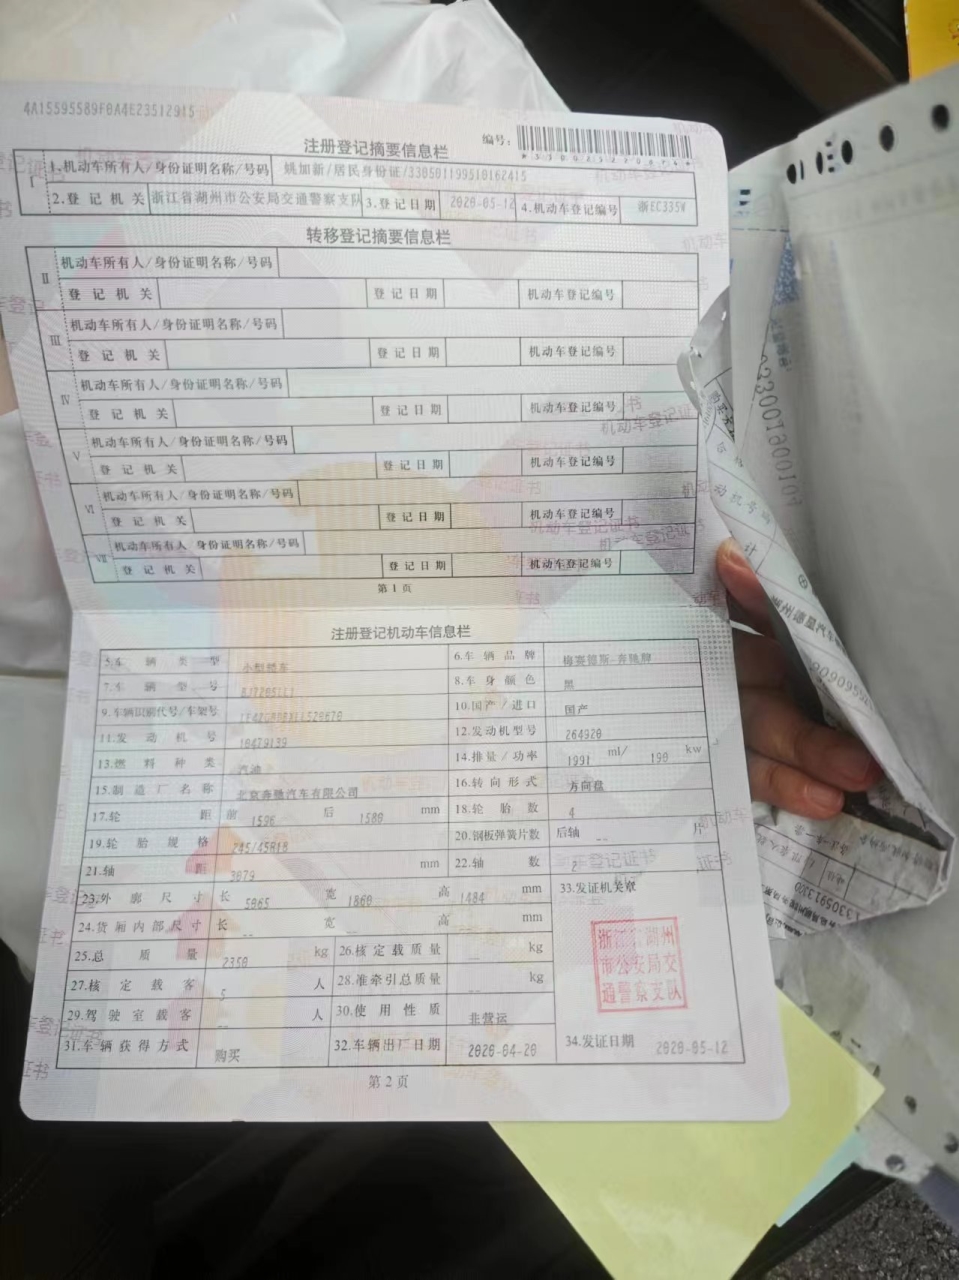 4A15595589F8A4E23512915
编号:
注册登记摘要信息栏
I 1.机动车所有人/身份证明名称/号码 姚加新/居民身份证/330501199510162415
2.登记机关 浙江省湖州市公安局交通警察支队 3.登记日期 2020-05-12 4.机动车登记编号 浙EC335W
转移登记摘要信息栏
II 机动车所有人/身份证明名称/号码
登记机关 登记日期 机动车登记编号
III 机动车所有人/身份证明名称/号码
登记机关 登记日期 机动车登记编号
IV 机动车所有人/身份证明名称/号码
登记机关 登记日期 机动车登记编号
V 机动车所有人/身份证明名称/号码
登记机关 登记日期 机动车登记编号
VI 机动车所有人/身份证明名称/号码
登记机关 登记日期 机动车登记编号
VII 机动车所有人/身份证明名称/号码
登记机关 登记日期 机动车登记编号
第1页
注册登记机动车信息栏
5.车辆类型 小型轿车 6.车辆品牌 梅赛德斯-奔驰牌
7.车辆型号 8.车身颜色 黑
9.车辆识别代号/车架号 10.国产/进口 国产
11.发动机号 18479139 12.发动机型号 264920
13.燃料种类 汽油 14.排量/功率 1991 ml/ 190 kw
15.制造厂名称 北京奔驰汽车有限公司 16.转向形式 方向盘
17.轮距 前 1596 后 1580 mm 18.轮胎数 4
19.轮胎规格 245/45R18 20.钢板弹簧片数 后轴 -- 片
21.轴距 3079 mm 22.轴数 2
23.外廓尺寸 长 5065 宽 1860 高 1484 mm 33.发证机关章
24.货厢内部尺寸 长 -- 宽 -- 高 -- mm
浙江省湖州
市公安局交
通警察支队
25.总质量 2350 kg 26.核定载质量 -- kg
27.核定载客 5 人 28.准牵引总质量 -- kg
29.驾驶室载客 -- 人 30.使用性质 非营运
31.车辆获得方式 购买 32.车辆出厂日期 2020-04-20 34.发证日期 2020-05-12
第2页